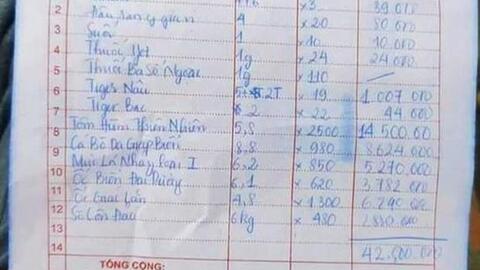 +6 × 3 39.000
2 4 × 20 80.000
3 Suối 1 × 10 10.000
4 Thuốc 1g × 24 24.000
5 Thuốc Ba Số Ngoại 1g × 110
6 Tiger Nâu 5+ 2T × 19 1.007.000
7 Tiger Bạc 2 × 22 44.000
8 Tôm Hùm Thiên Nhiên 5,8 × 2500 14.500.00
9 Cá Bò Da Giáp Biển 8,8 × 980 8.624.000
10 Mực Lá Nháy loại I 6,2 × 850 5.270.000
11 Ốc Biển Đại Dương 6,1 × 620 3.782.000
12 Ốc Giác Lân 4,8 × 1300 6.240.000
13 Sò Côn Đảo 6kg × 480 2880.000
14 42.500.000
TỔNG CỘNG: